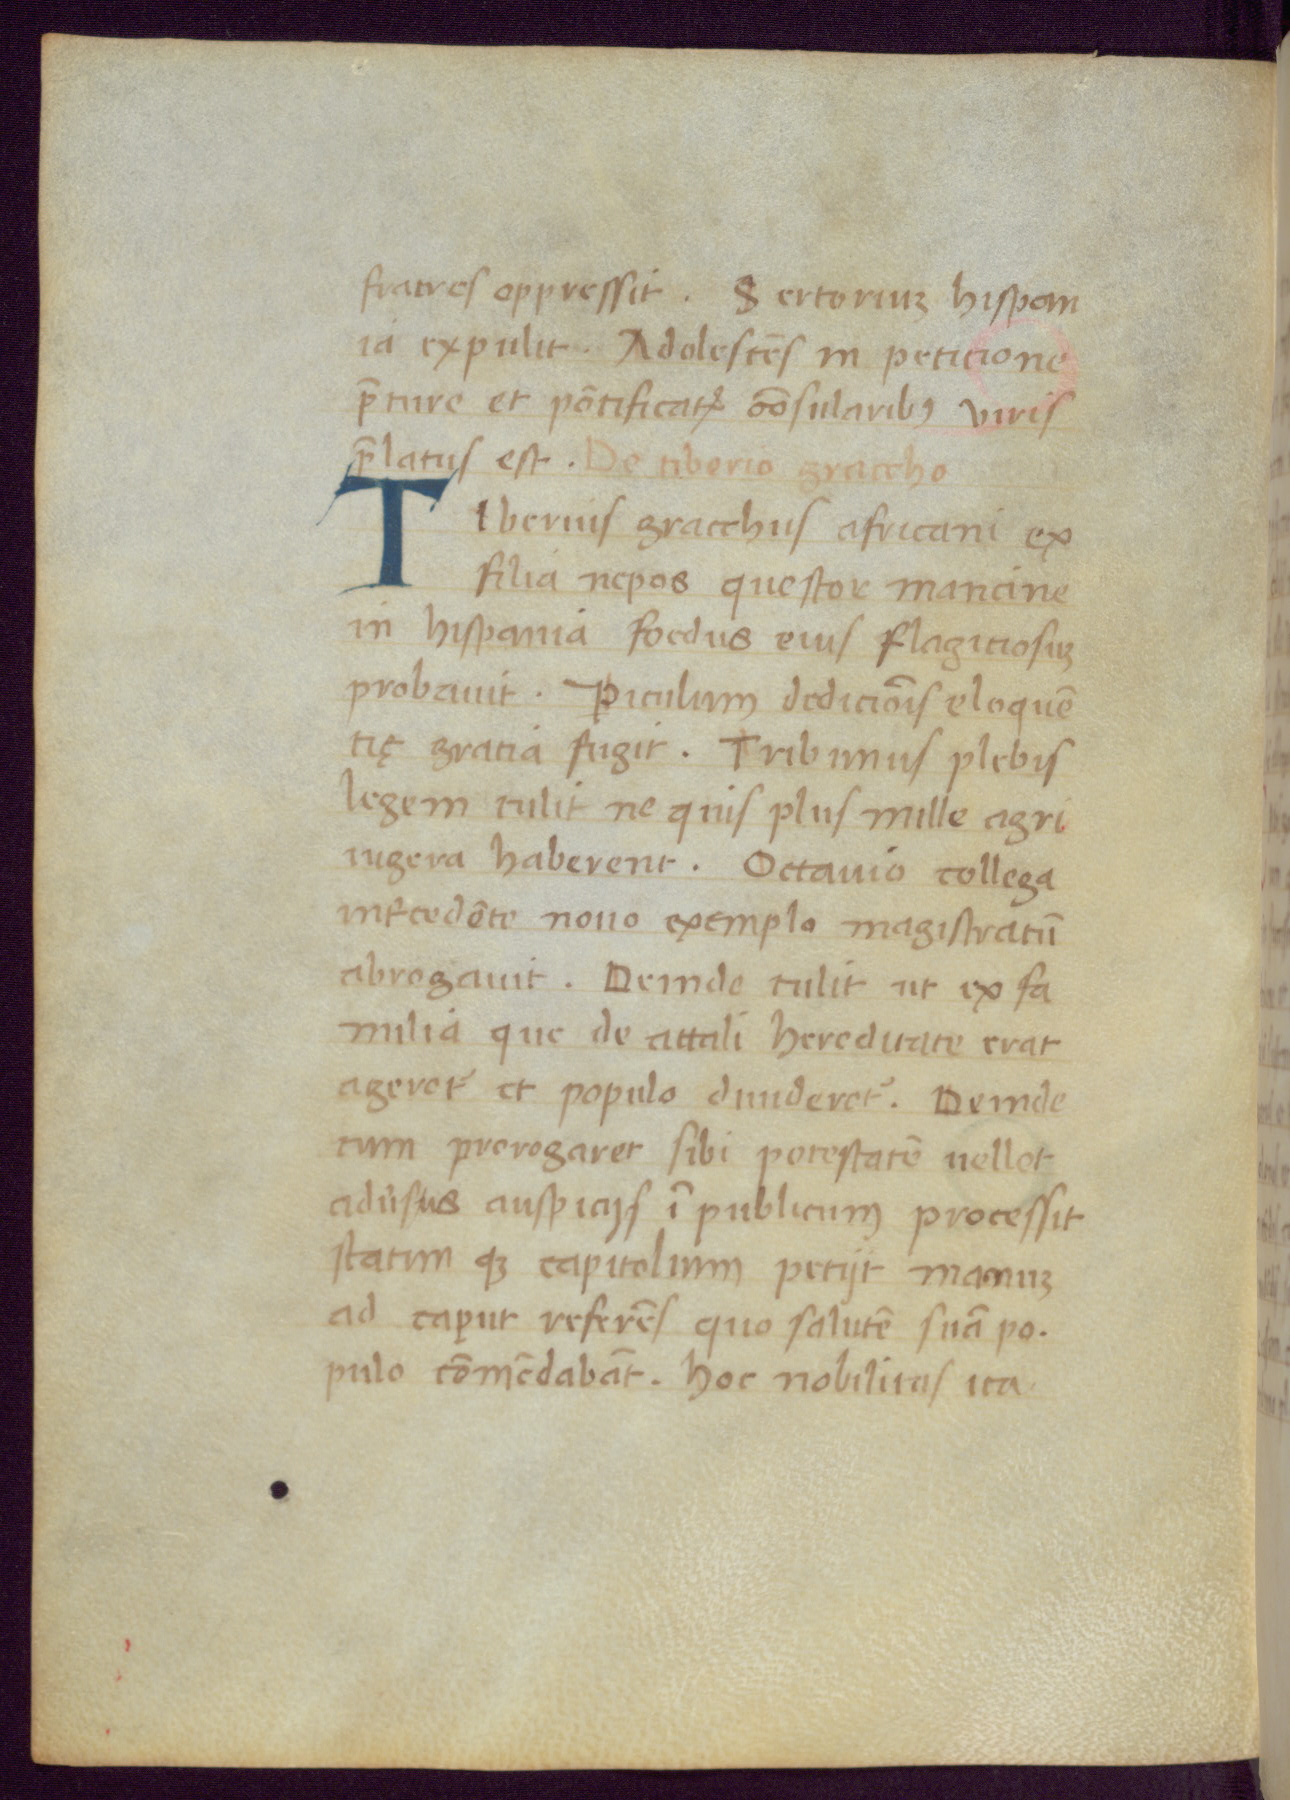 fratres oppressit . Sertoriuꝫ hispan
ia expulit . Adolescēs in peticione
p̄ture et pōtificatꝰ cōsularibꝯ viris
p̄latus est . De tiberio graccho
Tiberius gracchus africani ex
filia nepos questor mancine
in hispania foedus eius flagitiosuꝫ
probauit . Ꝑiculum dediciōis eloquē
tię gratia fugit . Tribunus plebis
legem tulit ne quis plus mille agri
iugera haberent . Octauio collega
int̄cedēte nouo exemplo magistratū
abrogauit . Deinde tulit ut ex fa
milia que de attali hereditate erat
ageret᷑ et populo diuideret᷑ . Deinde
cum prerogaret sibi potestatē uellet
adu̇sus auspicijs ī publicum processit
statim qꝫ capitolium petijt manuꝫ
ad caput referēs quo salutē suā po.
pulo cōmēdabāt . hoc nobilitas ita